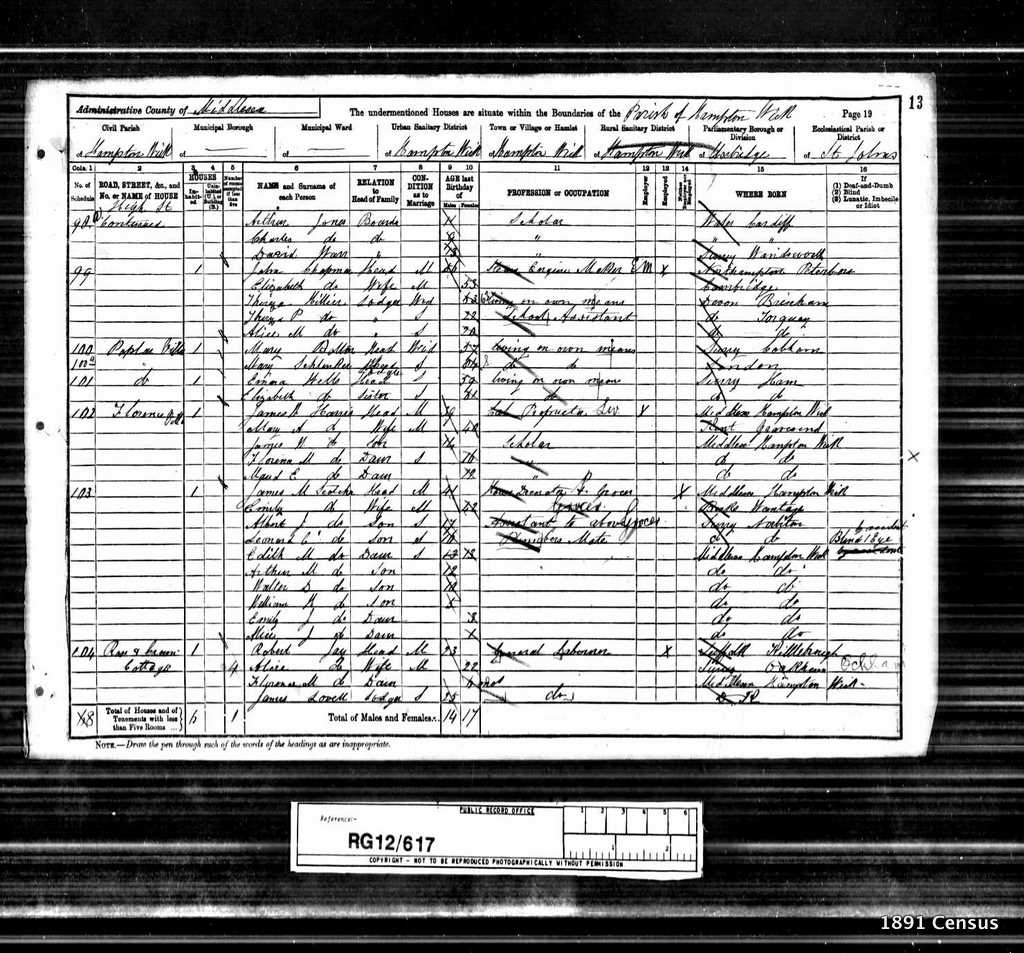 13
Administrative County of Middlesex The undermentioned Houses are situate within the Boundaries of the Parish of Hampton Wick Page 19
Civil Parish Municipal Borough Municipal Ward Urban Sanitary District Town or Village or Hamlet Rural Sanitary District Parliamentary Borough or Division Ecclesiastical Parish or District
of Hampton Wick of of of Hampton Wick of Hampton Wick of Hampton Wick of Uxbridge of St Johns
Cols. 1 2 3 4 5 6 7 8 9 10 11 12 13 14 15 16
No. of Schedule ROAD, STREET, &c., and No. or NAME of HOUSE HOUSES Inhabited Uninhabited (U.), or Building (B.) Number of rooms occupied if less than five NAME and Surname of each Person RELATION to Head of Family CONDITION as to Marriage AGE last Birthday of Males Females PROFESSION or OCCUPATION Employer Employed Neither Employer nor Employed WHERE BORN If (1) Deaf-and-Dumb (2) Blind (3) Lunatic, Imbecile or Idiot
High St
98 Continued Arthur Jones Boarder 11 Scholar Wales Cardiff
Charles do do " "
David Warr " " Surrey Wandsworth
99 1 John Chapman Head M Engine Maker E/M X Northampton Peterboro
Elizabeth do Wife M 53 Cambridge
Thirza Lodger Wid Living on own means Devon Brixham
Thirza P do " S 22 School Assistant do Torquay
Alice M do " S do do
100 Poplar Villa 1 Mary Head Wid 57 Living on own means Surrey Cobham
100a " Mary S do do London
101 do 1 Emma Head S 59 Living on own means Surrey Ham
Elizabeth do Sister S do do do
102 Florence Villa 1 James Harris Head M 39 Cab Proprietor X Middlesex Hampton Wick
Mary A do Wife M 42 Kent Gravesend
James W do Son 14 Scholar Middlesex Hampton Wick
Florence M do Daur S 16 " do do X
Maud E do Daur do do
103 1 James M Head M 41 Grocer X Middlesex Hampton Wick
Emily do Wife M 42 Grocer Berks Wantage
Albert J do Son S 17 Assistant to above Grocer Surrey Norbiton
Leonard C do Son S 16 Plumbers Mate do do Blind 1 Eye by accident
Edith M do Daur S 13 Middlesex Hampton Wick
Arthur M do Son 12 do do
Walter D do Son 10 do do
William H do Son do do
Emily J do Daur 3 do do
Alice J do Daur do do
104 Rose & Crown 1 Robert Jay Head M 23 General Labourer X Suffolk Kettleburgh
Cottage 4 Alice do Wife M 22 Surrey Oakham Ockham
Florence M do Daur 6 mos Middlesex Hampton Wick
James Lovell Lodger S 55 do
Total of Houses and of Tenements with less than Five Rooms ... 6 1 Total of Males and Females... 14 17
NOTE.—Draw the pen through such of the words of the headings as are inappropriate.
PUBLIC RECORD OFFICE
Reference:-
RG12/617
1 2 3 4 5 6
1 2
COPYRIGHT - NOT TO BE REPRODUCED PHOTOGRAPHICALLY WITHOUT PERMISSION
1891 Census